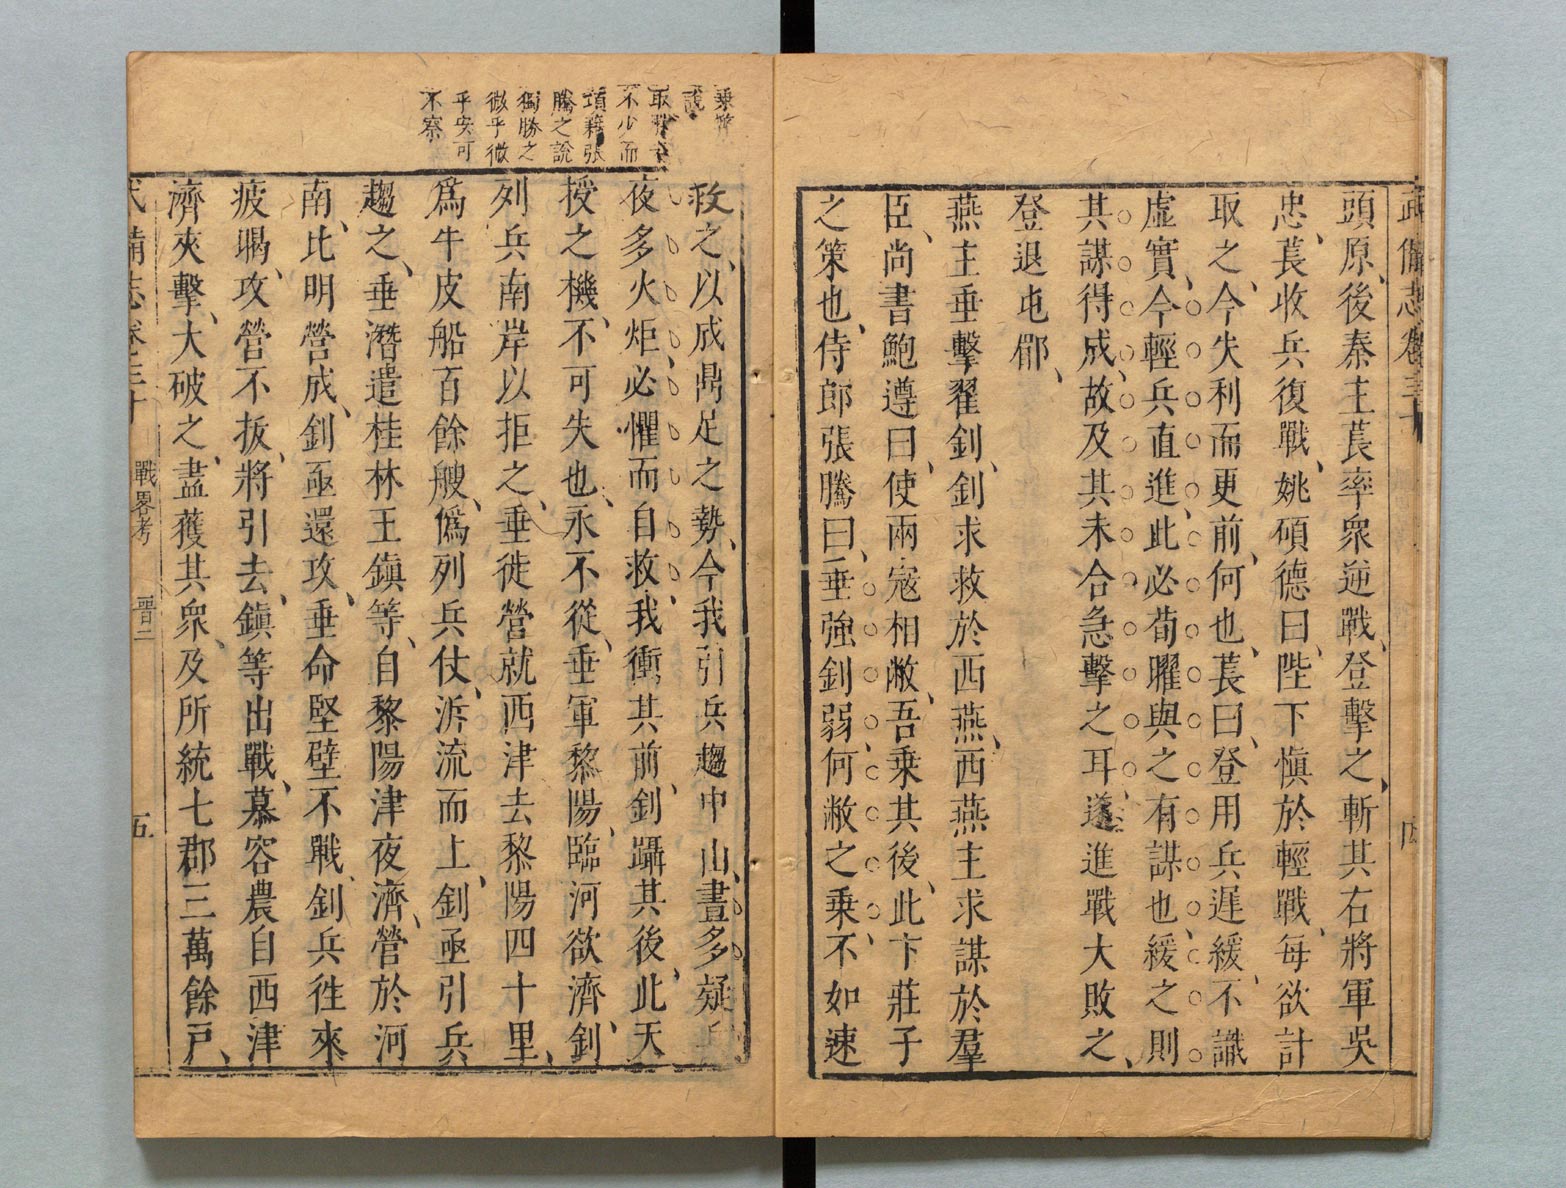 武備志卷三十
四
頭原、後秦主萇率衆逆戰、登擊之、斬其右將軍吳
忠、萇收兵復戰、姚碩德曰、陛下愼於輕戰、每欲計
取之、今失利而更前、何也、萇曰、登用兵遲緩、不識
虛實、今輕兵直進、此必荀曜與之有謀也、緩之則
其謀得成、故及其未合急擊之耳、遂進戰大敗之、
登退屯郿、
燕主垂擊翟釗、釗求救於西燕、西燕主求謀於羣
臣、尚書鮑遵曰、使兩寇相敝、吾乘其後、此卞莊子
之策也、侍郎張騰曰、垂強釗弱、何敝之乘、不如速
乘敝
說
取勝者
不少而
項籍張
騰之說
獨勝之
微乎微
乎安可
不察
救之、以成鼎足之勢、今我引兵趨中山、晝多疑兵
夜多火炬、必懼而自救、我衝其前、釗躡其後、此天
授之機、不可失也、永不從、垂軍黎陽、臨河欲濟、釗
列兵南岸以拒之、垂徙營就西津去黎陽四十里、
爲牛皮船百餘艘、僞列兵仗、泝流而上、釗亟引兵
趨之、垂潛遣桂林王鎮等、自黎陽津夜濟、營於河
南、比明營成、釗亟還攻、垂命堅壁不戰、釗兵徃來
疲暍、攻營不拔、將引去、鎮等出戰、慕容農自西津
濟夾擊、大破之、盡獲其衆、及所統七郡三萬餘戶、
武備志卷三十
戰畧考
晉二
五